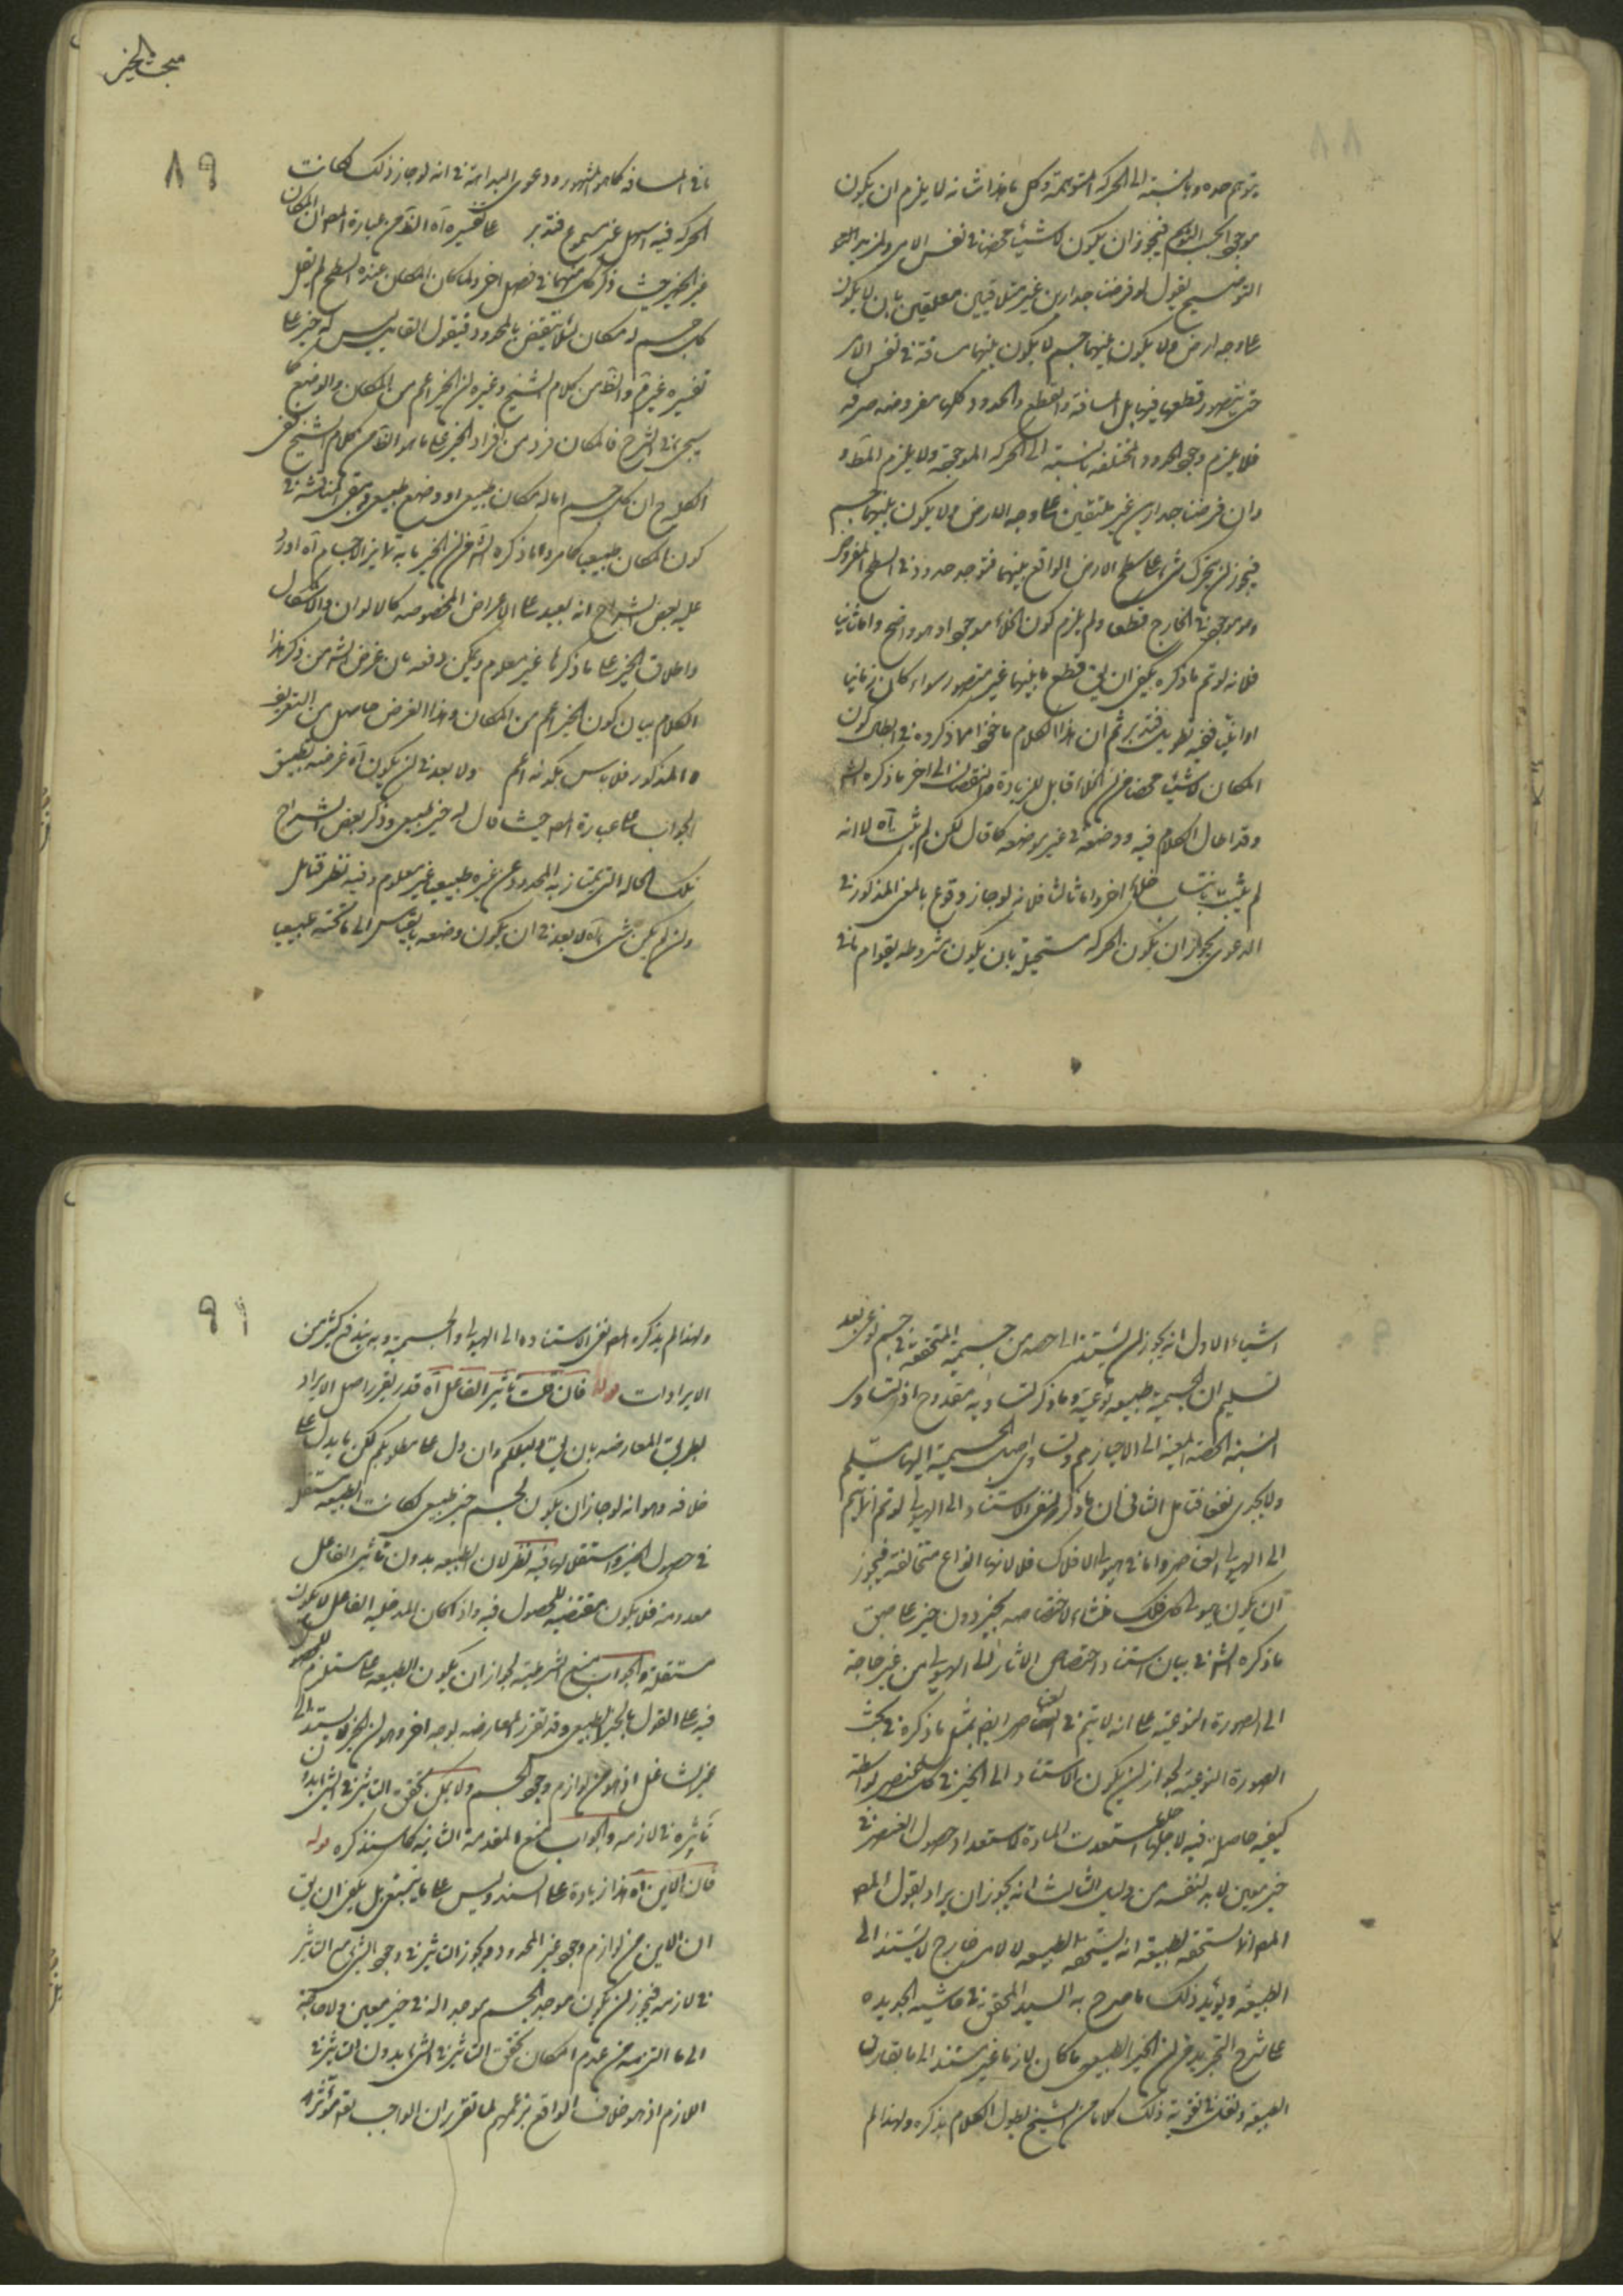 يتوهم حده وبالنسبة الى الحركة المتوهمة وكل ما هذا شانه لا يلزم ان يكون
موجودا بحسب التوهم فيجوز ان يكون لا شيئا محضا في نفس الامر ولمزيد
التوضيح نقول لو فرضنا جدارين غير متلاقيين معلقين بان لا يكون
على وجه ارض ولا يكون بينهما جسم لا يكون بينهما مسافة في نفس الامر
حتى يتصور قطعها فيها بل المسافة والقطع والحدود كلها مفروضة صرفة
فلا يلزم وجود الحدود المختلفة بالنسبة الى الحركة الموجودة ولا يلزم المط و
وان فرضنا جدارين غير ملتقيين على وجه الارض ولا يكون بينهما جسم
فيجوز ان يتحرك شيء على سطح الارض الواقع بينهما فتوجد حدود في السطح المفروض
وهو موجود في الخارج قطعا ولم يلزم كون الخلاء موجودا وهو واضح واما ثانيا
فلانه لو تم ما ذكره يكفي ان يق قطع ما بينهما غير متصور سواء كان زمانيا
او انيا ففيه تطويل فتدبر ثم ان هذا الكلام ماخوذ مما ذكروه في ابطال كون
المكان لا شيئا محضا من ان الخلاء قابل للزيادة والنقصان الى اخر ما ذكره الش
وقد اطال الكلام فيه ووضعه في غير موضعه كما قال لكن لم يثبت آه لا انه
لم يثبت خلاء اخر واما ثالثا فلانه لو جاز وقوع بالمعنى المذكور في
الدعوى يجوز ان يكون الحركة مستحيل بان يكون مشروطه بقوام ما في
مبحث الحيز
٨٩
ما في المسافة كما هو المشهور ودعوى البداهة في انه لو جاز ذلك لكانت
الحركة فيه اسهل غير مسموع فتدبر على تفسيره آه الظ من عبارة المص ان المكان
غير الحيز حيث ذكر كل منهما في فصل اخر ولما كان المكان عنده السطح لم يقل
كل جسم له مكان لئلا ينتقض بالمحدد فيقول القائل ليس له حيز على
تفسيره غيرم والظ من كلام الشيخ وغيره ان الحيز اعم من المكان والوضع كما
سيجيء في الشرح فالمكان فرد من افراد الحيز على ما هو الظ من كلام الشيخ
الكلام ان كل جسم اما له مكان طبيعي او وضع طبيعي وبقي المناقشة في
كون المكان طبيعيا كما مر واما ذكره الش من ان الحيز ما به تمايز الاجسام آه اورد
عليه بعض الشراح انه بعيد على الاعراض المخصوصة كالالوان والاشكال
واطلاق الحيز على ما ذكر ها غير معلوم ويمكن دفعه بان غرض الش من ذكر هذا
الكلام بيان كون الحيز اعم من المكان وهذا الغرض حاصل من التعريف
المذكور فلا باس بكونه اعم ولا بعد في ان يكون آه غرضه تطبيق
الجواب على عبارة المص حيث قال له حيز طبيعي وذكر بعض الشراح
تلك الحالة التي يمتاز به المحدد عن غيره طبيعيا غير معلوم وفيه نظر فتامل
وان لم يكن شيء آه لا بعد في ان يكون وضعه بالقياس الى ما تحته طبيعيا
اشياء الاول انه يجوز ان يستند الى حصة من جسمية المتحققة في جسم نوعي بعد
تسليم ان الجسمية طبيعة نوعية وما ذكر لتساويه مقدوح اذ التساوى
النسبة الحصة المعينة الى الاحياز م وتساوي اصل الجسمية اليها مسلم
ولا يجدى نفعا فتامل الثاني ان ما ذكر لنفي الاستناد الى الهيولى لو تم لا يتم
الى الهيولى العناصر واما في هيولى الافلاك فلا لانها انواع متخالفة فيجوز
ان يكون هيولى كل فلك منشاء لاختصاصه بحيز دون حيز على حسب
ما ذكره الش في بيان استناد اختصاص الاثار الى الهيولى من غير حاجة
الى الصورة النوعية على انه لا يتم في العناصر ايضا بمثل ما ذكره في بحث
الصورة النوعية لجواز ان يكون الاستناد الى الحيز في كل عنصر بواسطة
كيفية حاصلة فيه لاجلها استعدت المادة لاستعداد حصول العنصر في
حيز معين لا بد لنفيه من دليل الثالث انه يجوز ان يراد بقول المص
المص انه لا يستحقه لطبيعته انه يستحقه الطبيعة لا لامر خارج لا يستند الى
الطبيعة ويؤيد ذلك ما صرح به السيد المحقق في حاشيته الجديدة
على شرح التجريد من ان الحيز الطبيعي ما كان لازما غير مستند الى ما يقارن
الطبيعة ونقل في تقوية ذلك كلاما من الشيخ يطول الكلام بذكره ولهذا لم
٩
ولهذا لم يذكره المص نفى الاستناده الى الهيولى والجسمية وبه يندفع كثير من
الايرادات قوله فان قلت تاثير الفاعل آه قد يقرر اصل الايراد
بطريق المعارضة بان يق دليلكم وان دل على مطلوبكم لكن ما يدل على
خلافه وهو انه لو جاز ان يكون لجسم حيز طبيعي لكانت الطبيعة مستقلة
في حصول الحيز واستقلالها فيه نظر لان الطبيعة بدون تاثير الفاعل
معدومة فلا يكون مقتضية للحصول فيه واذا كان المدخلية الفاعل لا يكون
مستقلة والجواب منع الشرطية لجواز ان يكون الطبيعة على مستلزم للحصول
فيه على القول بالحيز الطبيعي وقد تقرر المعارضة بوجه اخر وهو ان الحيز لا يستند الى
غير الشاغل اذ هو من لوازم وجود الجسم ولا يمكن تحقق التاثير في الشيء بدون
تاثيره في لازمه والجواب منع المقدمة الثانية كما سنذكره قوله
فان الاين آه هذا زيادة على السند وليس على ما ينبغي بل يكفي ان يق
ان الاين من لوازم وجود غير المحدد ويجوز التاثير في وجود الشيء مع التاثير
في لازمه فيجوز ان يكون موجد الجسم موجدا له في حيز معين ولا حاجة
الى ما التزمه من عدم امكان تحقق التاثير في الشيء بدون التاثير في
اللازم اذ هو خلاف الواقع بزعمهم لما تقرر ان الواجب تع موثر